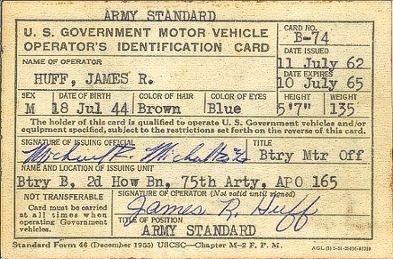 ARMY STANDARD
U. S. GOVERNMENT MOTOR VEHICLE
OPERATOR'S IDENTIFICATION CARD
CARD NO.
B-74
DATE ISSUED
11 July 62
NAME OF OPERATOR
HUFF, JAMES R.
DATE EXPIRES
10 July 65
SEX
M
DATE OF BIRTH
18 Jul 44
COLOR OF HAIR
Brown
COLOR OF EYES
Blue
HEIGHT
5'7"
WEIGHT
135
The holder of this card is qualified to operate U. S. Government vehicles and/or
equipment specified, subject to the restrictions set forth on the reverse of this card.
SIGNATURE OF ISSUING OFFICIAL
TITLE
Btry Mtr Off
NAME AND LOCATION OF ISSUING UNIT
Btry B, 2d How Bn, 75th Arty, APO 165
NOT TRANSFERABLE
Card must be carried
at all times when
operating Government
vehicles.
SIGNATURE OF OPERATOR (Not valid until signed)
James R. Huff
TITLE OF POSITION
ARMY STANDARD
Standard Form 46 (December 1955) USCSC—Chapter M-2 F. P. M.